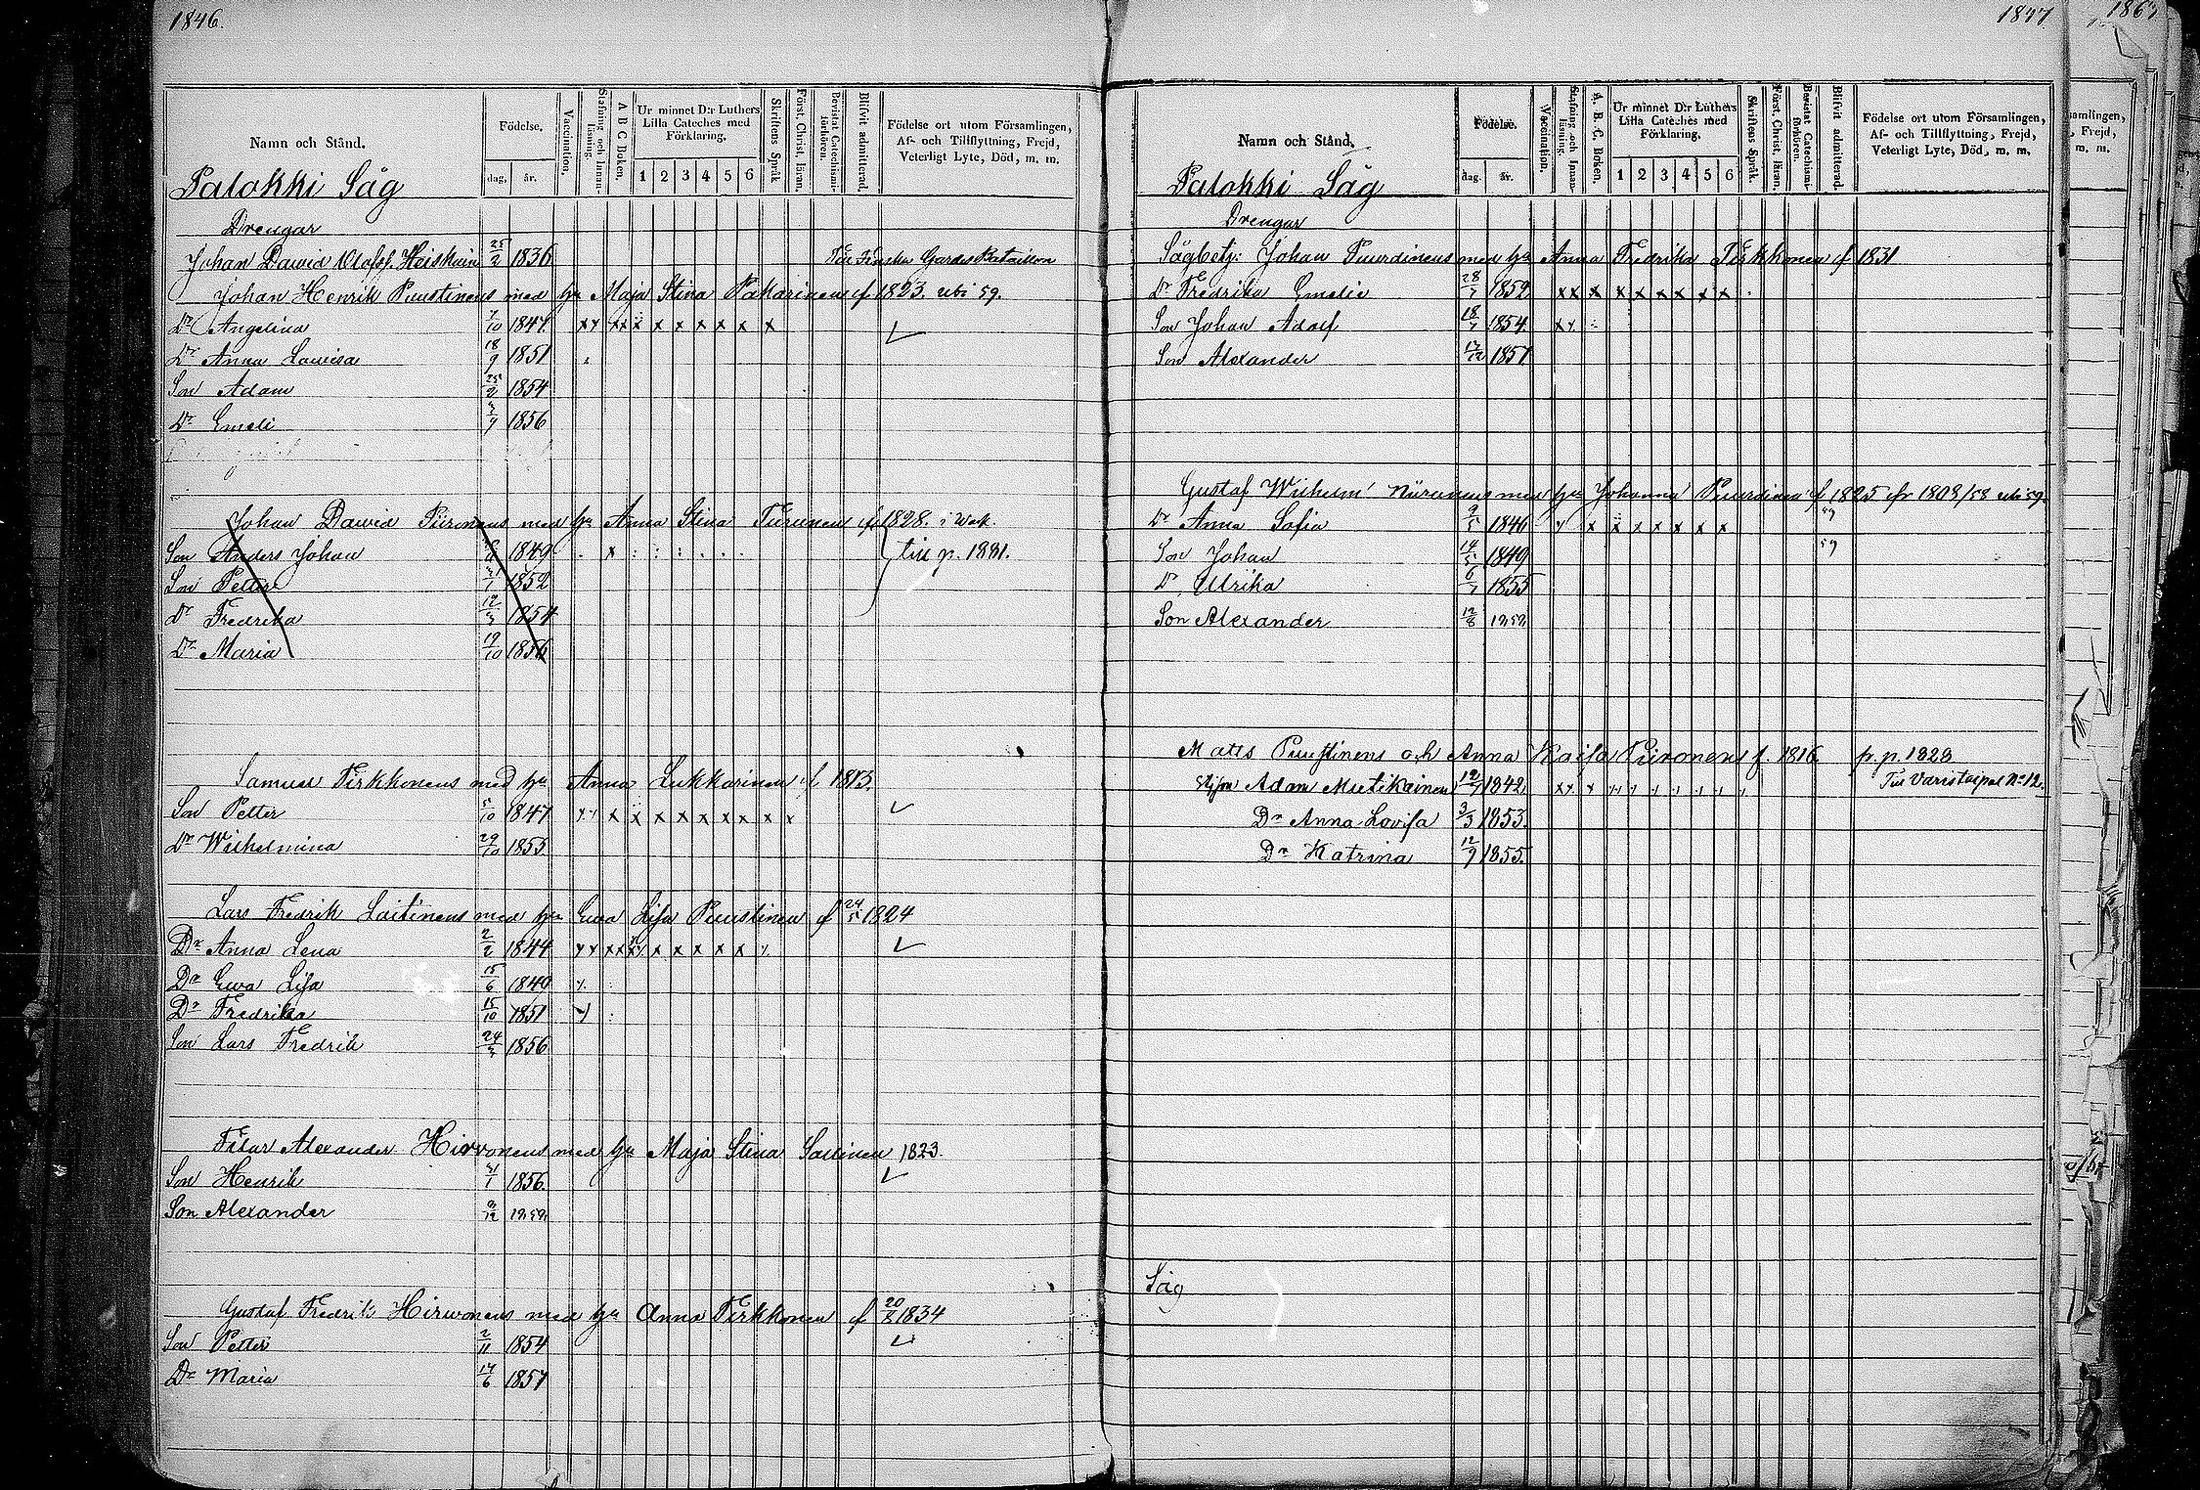 1846.
Namn och Stånd.
Födelse.
dag, år.
Vaccination.
Stafning och Innanläsning.
A B C Boken.
Ur minnet D:r Luthers Lilla Cateches med Förklaring.
1 2 3 4 5 6
Skriftens Språk
Först. Christ. läran.
Bevistat Catechismiförhören.
Blifvit admitterad.
Födelse ort utom Församlingen, Af- och Tillflyttning, Frejd, Veterligt Lyte, Död, m. m.
Palokki Såg
Drengar
Johan Dawid Olofss. Heiskain 25/2 1836 Finska Gardes Bataillon
Johan Henrik Puustinens med hu Maja Stina Pakarinen f 1823. ubi 59.
Dr Angelina 7/10 1847
Dr Anna Lowisa 18/9 1851
Son Adam 25/2 1854
Dr Emeli 3/7 1856
Johan Dawid Piironens med hu Anna Stina Turunen f 1828.
Son Anders Johan 1849 till p. 1881.
Son Petter 1852
Dr Fredrika 12/3 1854
Dr Maria 19/10 1856
Samuel Tirkkonens med hu Anna Lukkarinen f 1813.
Son Petter 5/10 1847
Dr Wilhelmina 29/10 1855
Lars Fredrik Laitinens med hu Ewa Lisa Puustinen f 24/5 1824
Dr Anna Lena 2/2 1844
Dr Ewa Lisa 15/6 1849
Dr Fredrika 15/10 1851
Son Lars Fredrik 24/3 1856
Filar Alexander Hirvonens med hu Maja Stina Sallinen 1823.
Son Henrik 31/1 1856.
Son Alexander 9/12 1859
Gustaf Fredrik Hirwonens med hu Anna Tirkkonen f 20/8 1834
Son Petter 2/11 1854
Dr Maria 17/6 1857
1847
Namn och Stånd.
Födelse.
dag. år.
Vaccination.
Stafning och Innanläsning.
A. B. C. Boken.
Ur minnet D:r Luthers Lilla Cateches med Förklaring.
1 2 3 4 5 6
Skriftens Språk.
Först. Christ. läran.
Bevistat Catechismiförhören.
Blifvit admitterad.
Födelse ort utom Församlingen, Af- och Tillflyttning, Frejd, Veterligt Lyte, Död, m. m.
Palokki Såg
Drengar
Sågbetj: Johan Puurdinens med hu Anna Fredrika Tirkkonen f 1831
Dr Fredrika Emelie 28/7 1852
Son Johan Adolf 18/7 1854
Son Alexander 1857
Gustaf Wilhelm med hu Johanna Puurdinen f 1825 fr 1808/58 ubi 59.
Dr Anna Sofia 9/5 1846 59
Son Johan 14/5 1849 59
Dr Ulrika 6/7 1855
Son Alexander 12/8 1859
Matts Puustinens och Anna Kaisa Piironens f. 1816. p. p. 1828
Styfson Adam Mietikainen 12/7 1842 Till No 12.
Dr Anna Lovisa 3/3 1853.
Dr Katrina 12/9 1855.
Såg